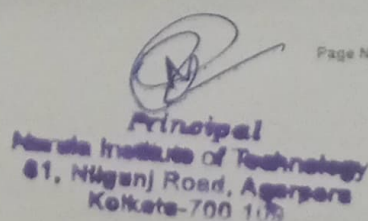 Page N
Principal
Narula Institute of Technology
81, Nilgunj Road, Agarpara
Kolkata-700 109